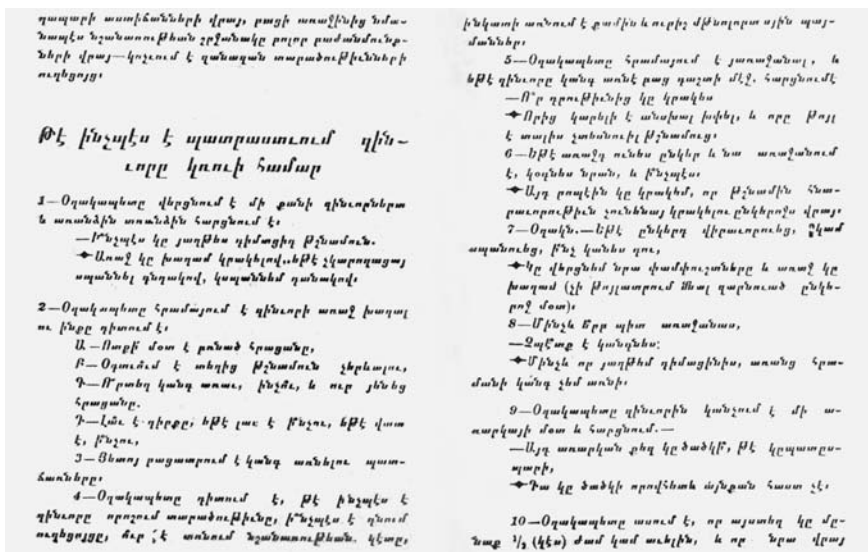 դապարի աստիճանների վրայ, բացի առաջինից նմա-
նապէս նշանառութեան շրջանակը բոլոր բաժանմունք-
ների վրայ—կոչւում է զանազան տարածութիւնների
ուղեցոյց։
Թէ ինչպէս է պատրաստւում զին-
ւորը կռուի համար
1—Օղակապետը վերցնում է մի քանի զինւորներտ
և առանձին առանձին հարցնում է։
—Ի՞նչպէս կը յաղթես դիմացիդ թշնամուն.
Առաջ կը խաղամ կրակելով..եթէ չկարողացայ
սպաննել գնդակով, կսպաննեմ դանակով։
2—Օղակապետը հրամայում է զինւորի առաջ խաղալ
ու ինքը դիտում է։
Ա.—Ոտքի՞ մօտ է բռնած հրացանը,
Բ—Օգտւո՞ւմ է տեղից թշնամուն չերևալու,
Գ—Ո՞րտեղ կանգ առաւ, ինչո՞ւ, և ուր յենեց
հրացանը.
Դ—Լա՞ւ է դիրքը, եթէ լաւ է ի՞նչու, եթէ վատ
է, ի՞նչու,
3—Յետոյ բացատրում է կանգ առնելու պատ-
ճառները։
4—Օղակապետը դիտում է, թէ ինչպէս է
զինւորը որոշում տարածութիւնը, ի՞նչպէս է դնում
ուղեցոյցը, ո՞ւր է առնում նշանառութեան կէտը,
ինկատի առնում է քամին և ուրիշ մթնոլորտային պայ-
մաններ։
5—Օղակապետը հրամայում է յառաջանալ, և
եթէ զինւորը կանգ առնէ բաց դաշտի մէջ. հարցնումէ
—Ո՞ր դրութիւնից կը կրակես
Որից կարելի է անսխալ խփել, և որը թոյլ
է տալիս չտեսնուիլ թշնամուց։
6—Եթէ առաջդ ունես ընկեր և նա առաջանում
է, կօգնես նրան, և ի՞նչպէս։
Այդ րոպէին կը կրակեմ, որ թշնամին հնա-
րաւորութիւն չունենայ կրակելու ընկերոջս վրայ։
7—Օղակ.—Եթէ ընկերդ վիրաւորուեց, կամ
սպանուեց, ի՞նչ կանես դու,
Կը վերցնեմ նրա փամփուշտները և առաջ կը
խաղամ (չի թոյլատրում մնալ զարնուած ընկե-
րոջ մօտ)։
8—Մինչև ե՞րբ պիտ առաջանաս,
—Չպէ՞տք է կանգնես։
Մինչև որ յաղթեմ դիմացինիս, առանց հրա-
մանի կանգ չեմ առնի։
9—Օղակապետը զինւորին կանչում է մի ա-
ռարկայի մօտ և հարցնում.—
—Այդ առարկան քեզ կը ծածկի՞, թէ կըպատըս-
պարի,
Դա կը ծածկի որովհետև այնքան հաստ չէ։
10—Օղակապետը ասում է, որ այստեղ կը մը-
նաք 1/2 (կէս) ժամ կամ աւելին, և որ նրա վրայ